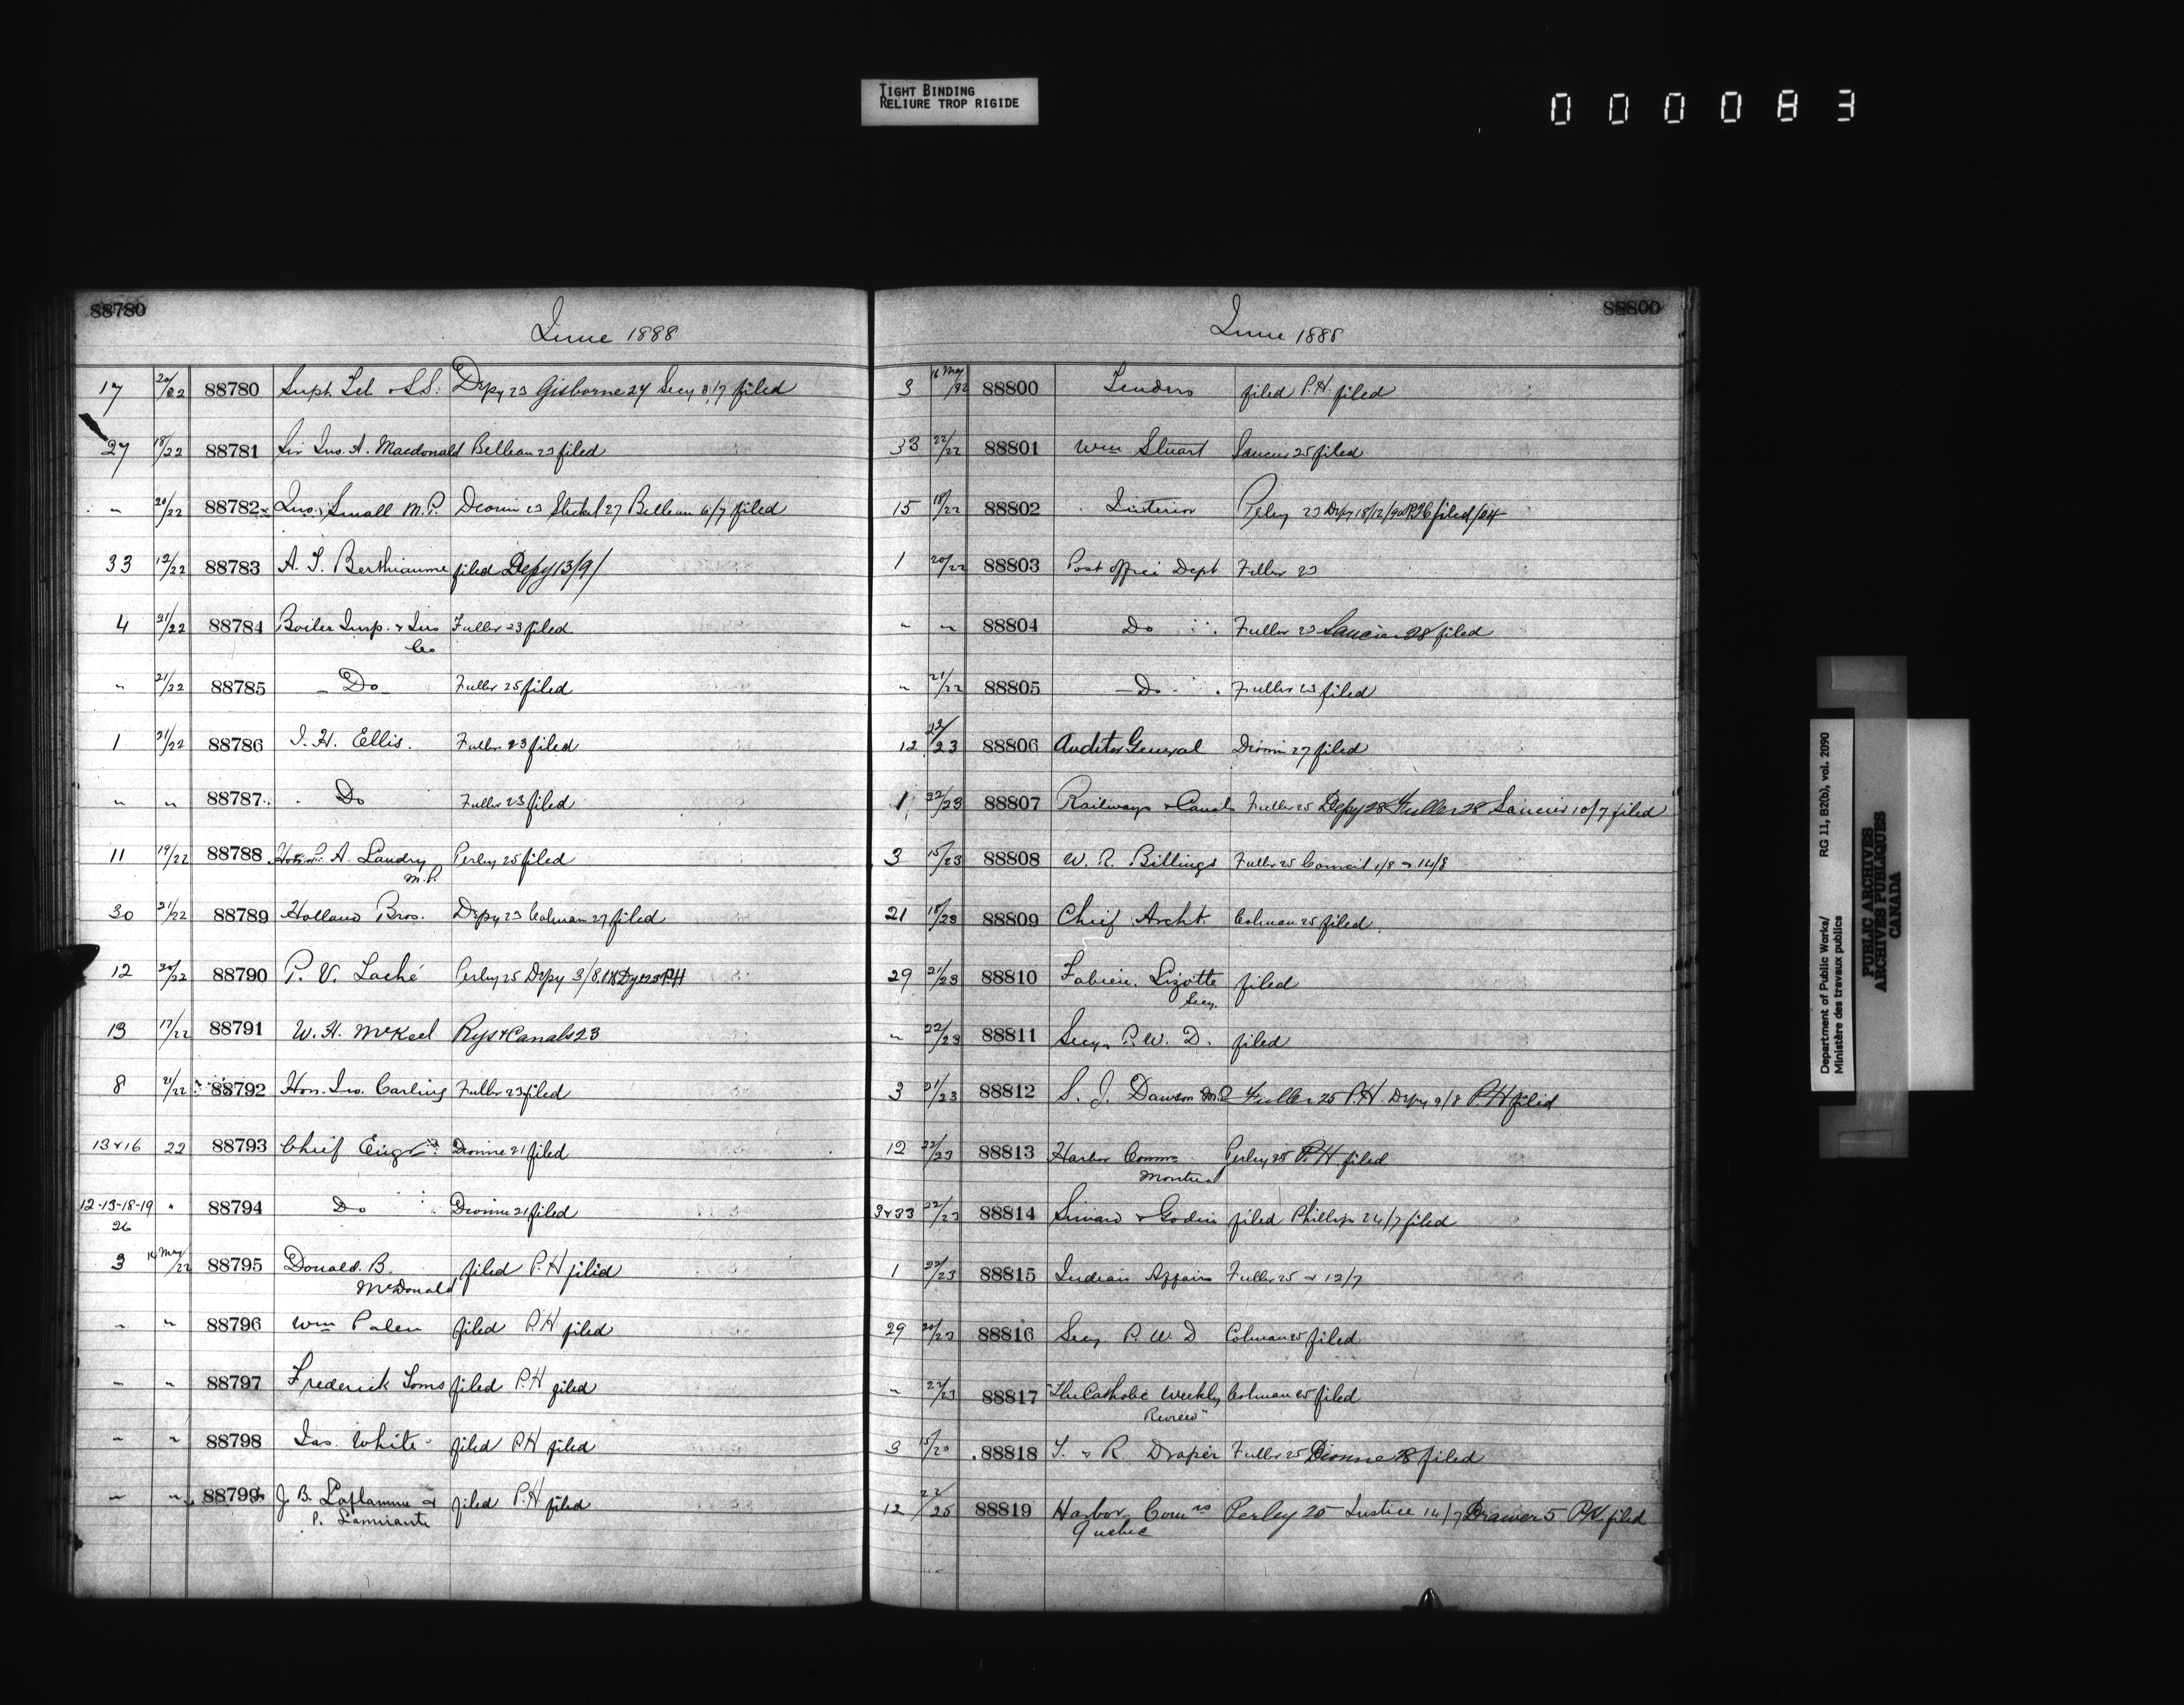 TIGHT BINDING
RELIURE TROP RIGIDE
000083
88780
June 1888
17 20/22 88780 Supt. Tel. & S.S. Depy 23 Gisborne 27 Secy 3/7 filed
27 18/22 88781 Sir Jno. A. Macdonald Belleau 23 filed
" 20/22 88782 Jno. Small M.P. Dionne 23 Steckel 27 Belleau 6/7 filed
33 12/22 88783 A. T. Berthiaume filed Depy 13/9/
4 21/22 88784 Boiler Insp. & Ins Fuller 23 filed
Co
" 21/22 88785 - Do - Fuller 25 filed
1 21/22 88786 J. H. Ellis. Fuller 23 filed
" " 88787 Do Fuller 23 filed
11 19/22 88788 P. A. Landry Perley 25 filed
M.P.
30 21/22 88789 Holland Bros. Depy 23 Colman 27 filed
12 20/22 88790 P. V. Laché Perley 25 Depy 3/8 P.H
13 17/22 88791 W. H. McKeel Rys & Canals 23
8 21/22 88792 Hon. Jno. Carling Fuller 23 filed
13 & 16 22 88793 Chief Engr. Dionne 21 filed
12-13-18-19 " 88794 Do Dionne 21 filed
26
3 14 May/22 88795 Donald. B. filed P.H filed
McDonald
" " 88796 Wm Palen filed P.H filed
" " 88797 Frederick Toms filed P.H filed
" " 88798 Jas. White filed P.H filed
" " 88799 J. B. Laflamme & filed P.H filed
P. Lamirante
88800
June 1888
3 16 May/22 88800 Tenders filed P.H. filed
33 22/22 88801 Wm Stuart Saucier 25 filed
15 18/22 88802 Interior Perley 23 Depy 18/12/90 filed/04
1 20/22 88803 Post Office Dept Fuller 23
" " 88804 Do Fuller 23 Saucier 28 filed
" 21/22 88805 - Do - Fuller 23 filed
12 22/23 88806 Auditor General Dionne 27 filed
1 22/23 88807 Railways & Canals Fuller 25 Depy 28 Fuller 28 Saucier 10/7 filed
3 15/23 88808 W. R. Billings Fuller 25 Council 1/8 " 14/8
21 18/23 88809 Chief Archt. Colman 25 filed.
29 21/23 88810 Fabien Lizotte filed
Secy.
" 22/23 88811 Secy. P. W. D. filed
3 21/23 88812 S. J. Dawson M.P. Fuller 25 P.H. Depy 9/8 P.H filed
12 22/23 88813 Harbor Comms Perley 25 P.H filed
Montreal
3 & 33 22/23 88814 Simard & Godin filed Phillips 24/7 filed
1 22/23 88815 Indian Affairs Fuller 25 & 12/7
29 20/23 88816 Secy P. W. D Colman 25 filed
" 22/23 88817 "The Catholic Weekly Colman 25 filed
Review"
3 15/20 88818 T. & R. Draper Fuller 25 Dionne 28 filed
12 22/25 88819 Harbor Comrs Perley 25 Justice 14/7 Drawer 5 P.H. filed
Quebec
Department of Public Works/ RG 11, B2(b), vol. 2090
Ministère des travaux publics
PUBLIC ARCHIVES
ARCHIVES PUBLIQUES
CANADA